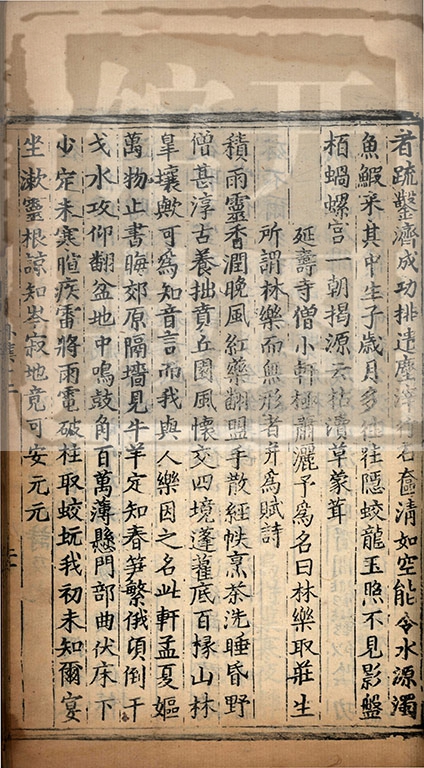 者疏鑿濟成功排遣塵滓行石奩清如空能令水源濁
魚鰕采其中生子歲月多往往隱蛟龍玉照不見影盤
栢蝸螺宫一朝揭源去枯瀆草蒙茸
延壽寺僧小軒極蕭灑予爲名曰林樂取莊生
所謂林樂而無形者并爲賦詩
積雨靈香潤晚風紅藥翻盟手散經帙烹茶洗睡昏野
僧甚淳古養拙賁丘園風懷交四境蓬藋底百椽山林
臯壤歟可爲知音言而我與人樂因之名此軒孟夏嫗
萬物止書晦郊原隔墻見牛羊定知春笋繁俄頃倒干
戈水攻仰翻盆地中鳴鼓角百萬薄懸門部曲伏床下
少定未寒暄疾雷將雨電破柱取蛟蚖我初未知爾宴
坐漱靈根諒知岑寂地竟可安元元